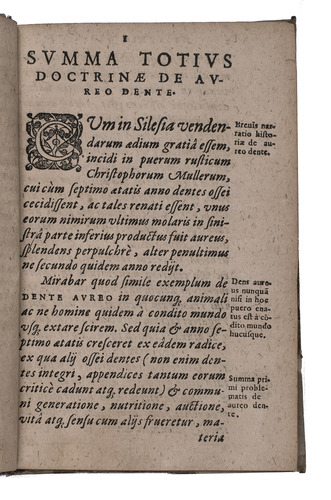 1
SVMMA TOTIVS
DOCTRINÆ DE AV-
REO DENTE.
CVm in Silesia venden-
darum ædium gratiâ essem,
incidi in puerum rusticum
Christophorum Mullerum,
cui cùm septimo ætatis anno dentes ossei
cecidissent, ac tales renati essent, vnus
eorum nimirum vltimus molaris in sini-
strâ parte inferius productus fuit aureus,
splendens perpulchrè, alter penultimus
ne secundo quidem anno redijt.
Mirabar quod simile exemplum de
DENTE AVREO in quocunq, animali
ac ne homine quidem à condito mundo
vsq, extare scirem. Sed quia & anno se-
ptimo ætatis cresceret ex eâdem radice,
ex qua alij ossei dentes (non enim den-
tes integri, appendices tantum eorum
criticè cadunt atq, redeunt) & commu-
ni generatione, nutritione, auctione,
vitâ atq, sensu cum alijs frueretur, ma-
teria
Breuis nar-
ratio histo-
riæ de au-
reo dente.
Dens aure-
us nunquã
nisi in hoc
puero ena-
tus est à cõ-
dito mundo
hucusque.
Summa pri-
mi proble-
matis de
aureo den-
te.